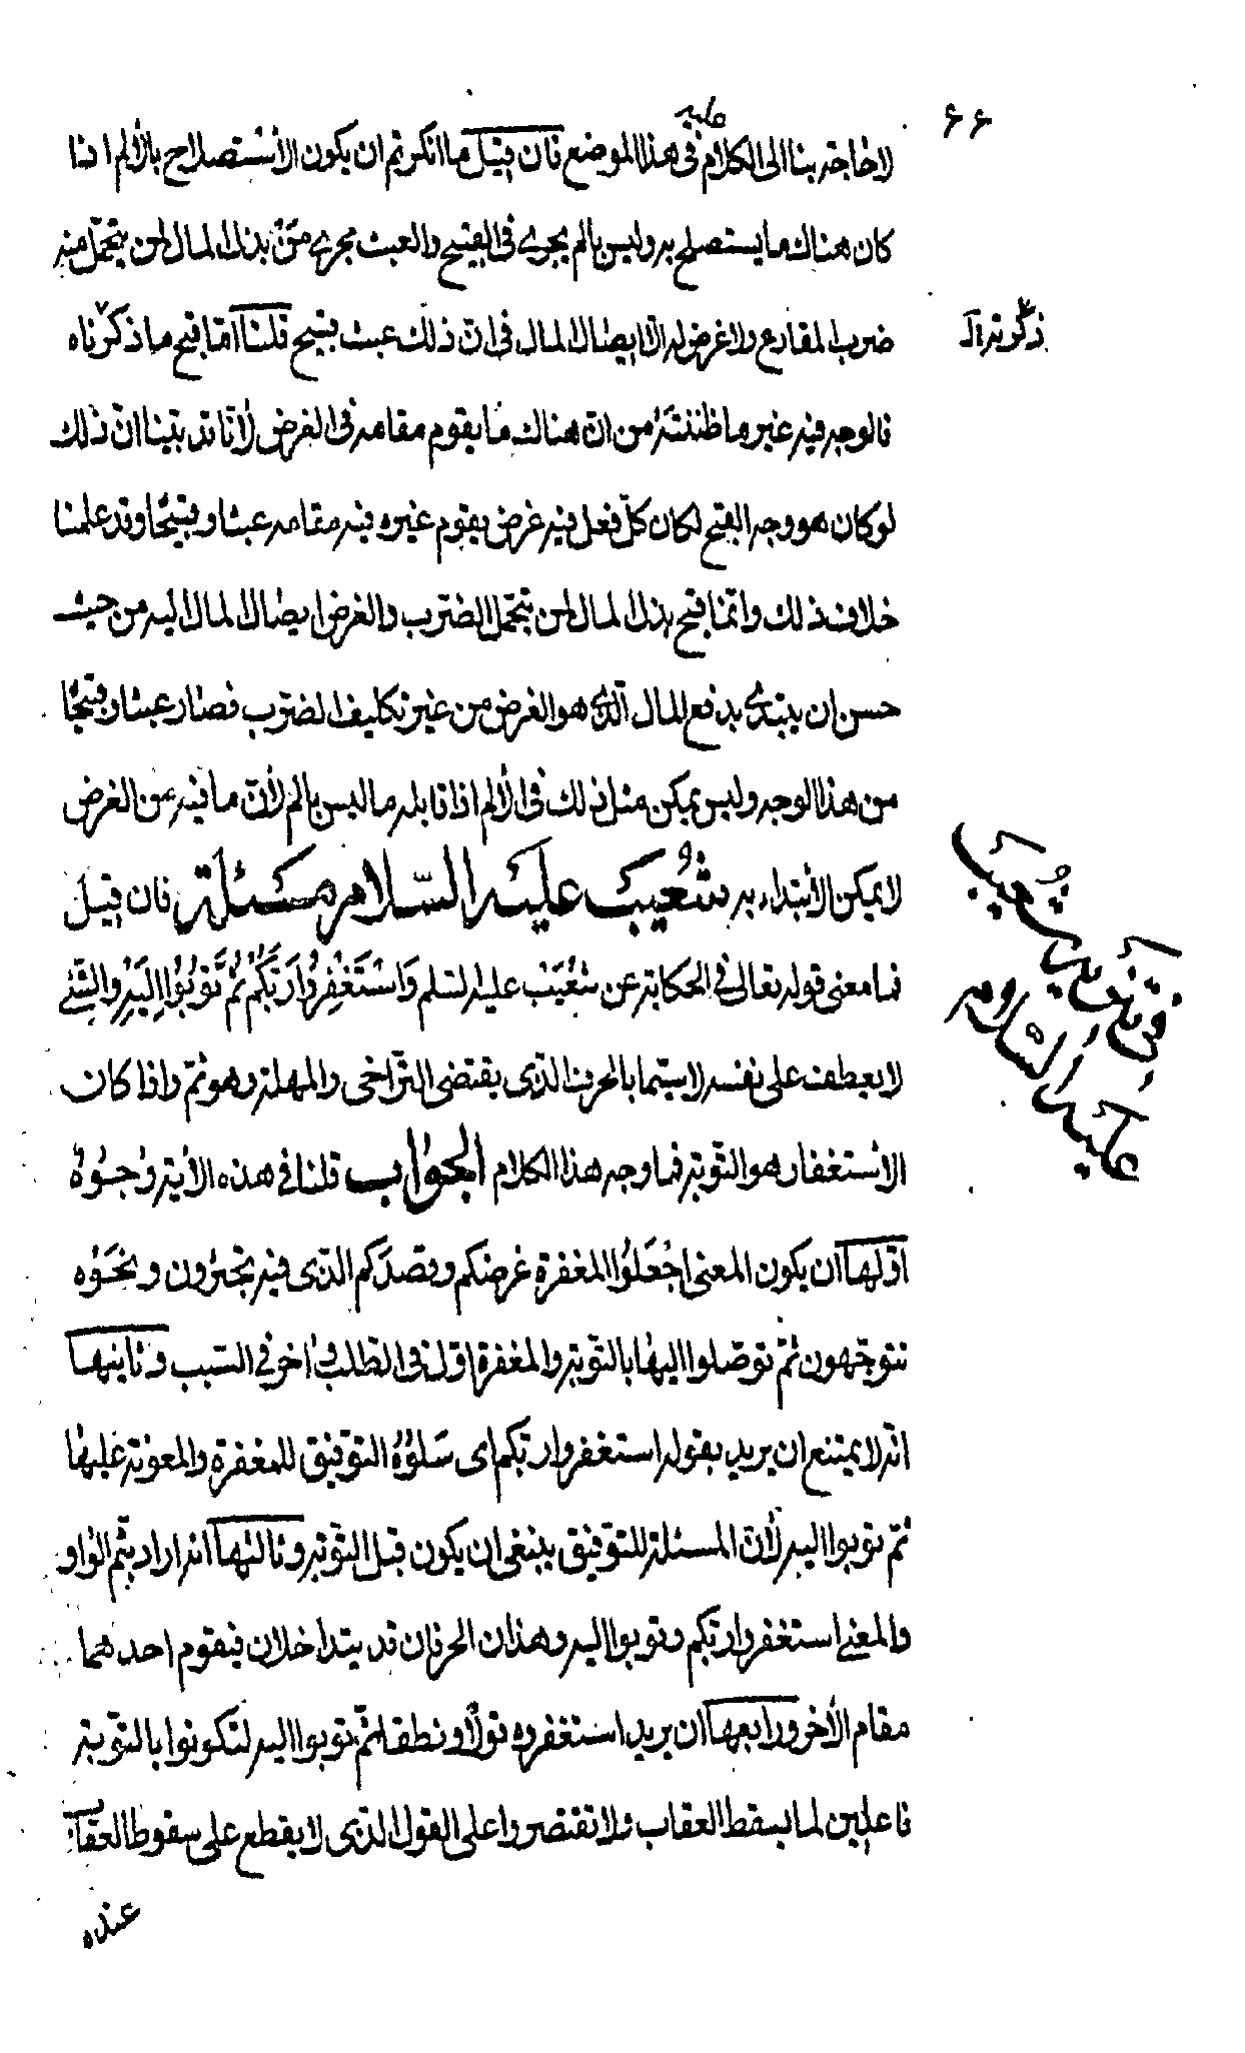 ۶۶
لا حاجة بنا الى الكلام عليه فى هذا الموضع فان قيل ما انكرتم ان يكون الأستصلاح بالألم اذا
كان هناك ما يستصلح به وليس بالم يجرى فى القبيح والعبث مجرى من بذل المال لمن يتحمل منه
ضرب المقارع ولا غرض له الا ايصال المال فى ان ذلك عبث قبيح قلنا اما قبح ما ذكرناه
ذكرتم
فالوجه فيه غير ما ظننته من ان هناك ما يقوم مقامه فى الغرض لأنا قد بينا ان ذلك
لو كان هو وجه القبح لكان كل فعل فيه غرض يقوم غيره فيه مقامه عبثا وقبيحا وقد علمنا
خلاف ذلك وانما قبح بذل المال لمن يتحمل الضرب والغرض ايصال المال اليه من حيث
حسن ان يبتدئ بدفع المال الذى هو الغرض من غير تكليف الضرب فصار عبثا وقبيحا
من هذا الوجه وليس يمكن مثل ذلك فى الألم اذا قابله ما ليس بالم لأن ما فيه من الغرض
لا يمكن الأبتداء به شعيب عليه السلام مسئلة فان قيل
فى تنزيه شعيب
عليه السلام
فما معنى قوله تعالى فى الحكاية عن شعيب عليه السلم واستغفروا ربكم ثم توبوا اليه والشئ
لا يعطف على نفسه لا سيما بالحرف الذى يقتضى التراخى والمهلة وهو ثم واذا كان
الأستغفار هو التوبة فما وجه هذا الكلام الجواب قلنا فى هذه الأية وجوه
اولها ان يكون المعنى اجعلوا المغفرة غرضكم وقصدكم الذى فيه تجئرون ونحوه
تتوجهون ثم توصلوا اليها بالتوبة والمغفرة اول فى الطلب واخر فى السبب وثانيها
انه لا يمتنع ان يريد بقوله استغفروا ربكم اى سلوه التوفيق للمغفرة والمعونة عليها
ثم توبوا اليه لأن المسئلة للتوفيق ينبغى ان يكون قبل التوبة وثالثها انه اراد بثم الواو
والمعنى استغفروا ربكم وتوبوا اليه وهذان الحرفان قد يتداخلان فيقوم احدهما
مقام الأخر ورابعها ان يريد استغفروه قولا ونطقا ثم توبوا اليه لتكونوا بالتوبة
فاعلين لما يسقط العقاب ولا تقتصروا على القول الذى لا يقطع على سقوط العقاب
عنده